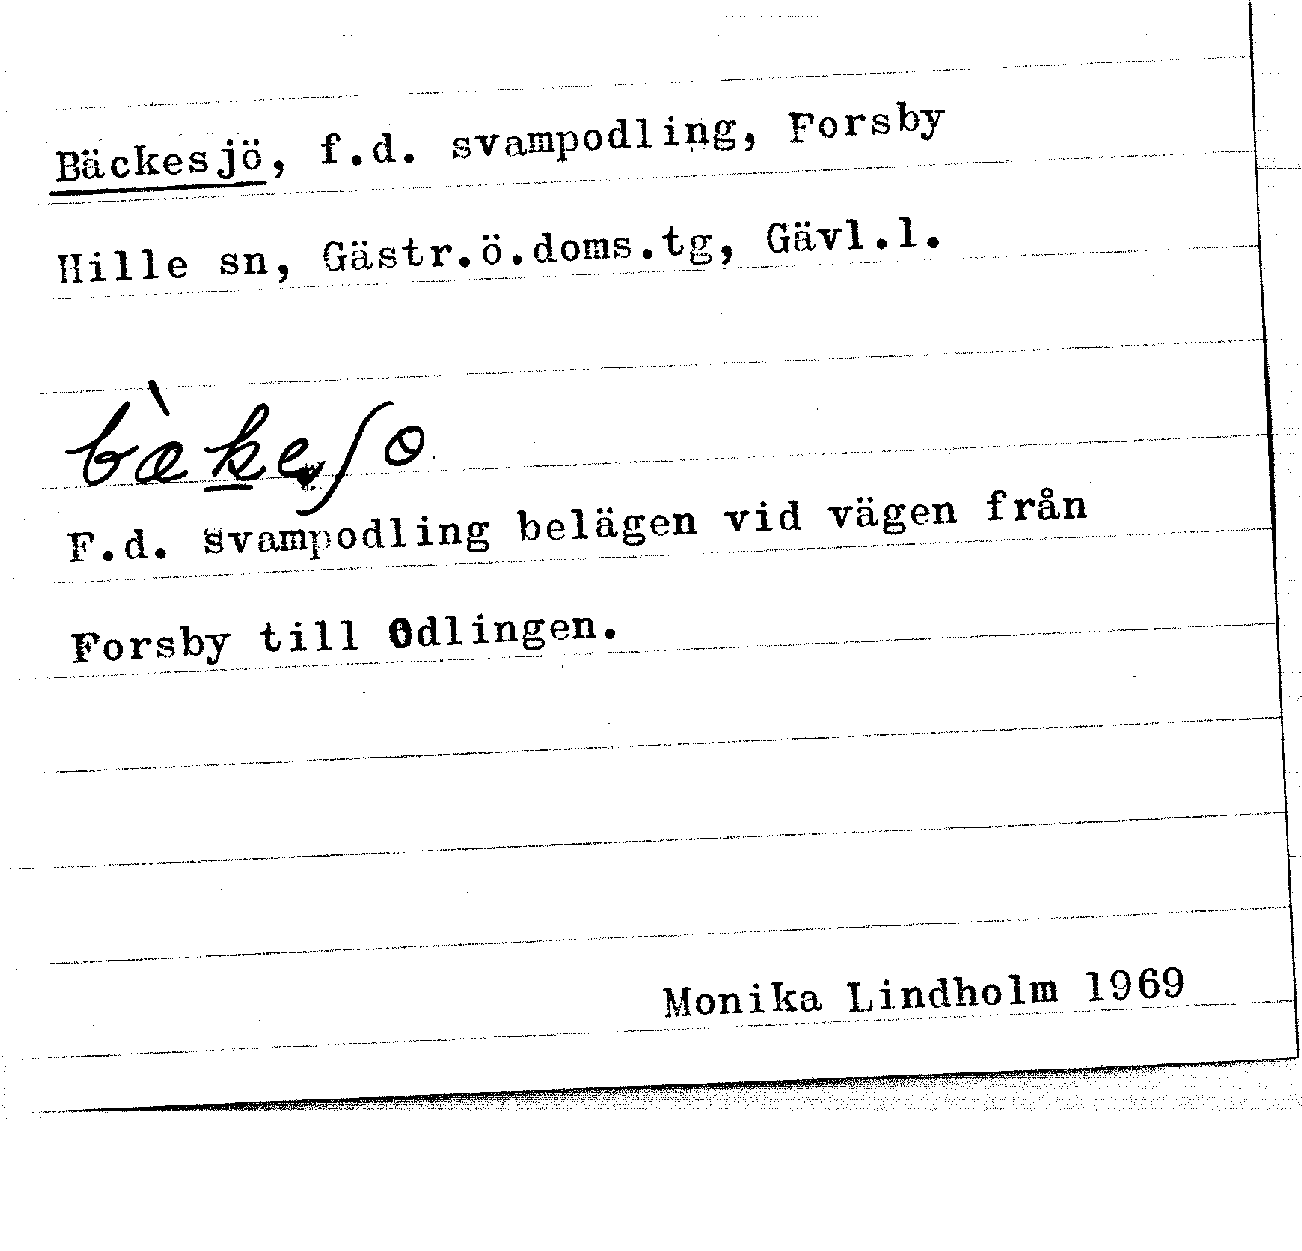 Bäckesjö, f.d. svampodling, Forsby
Hille sn, Gästr.ö.doms.tg, Gävl.l.
bæ̀ke ʃɵ
F.d. svampodling belägen vid vägen från
Forsby till Odlingen.
Monika Lindholm 1969